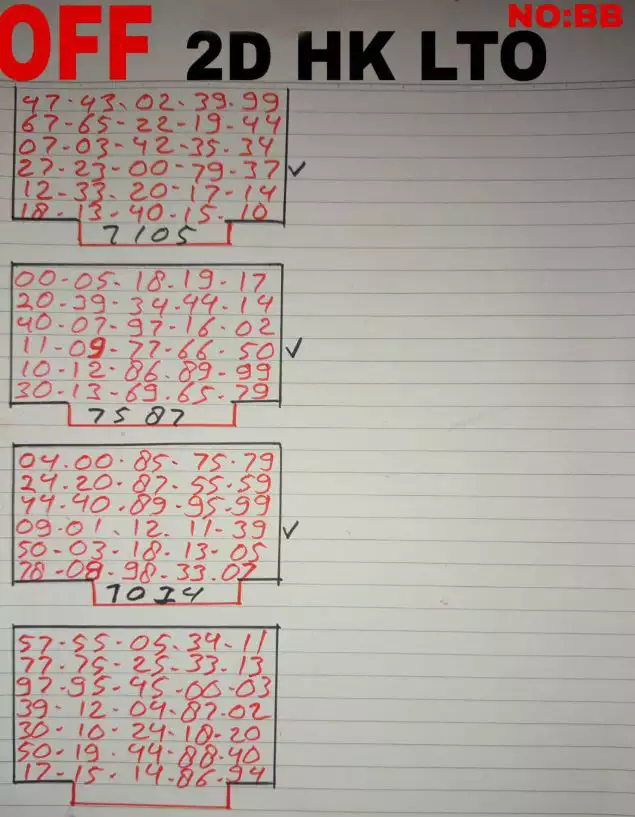 NO:BB
OFF 2D HK LTO
47-43-02-39-99
67-65-22-19-44
07-03-42-35-34
27-23-00-79-37 ✓
12-33-20-17-14
18-13-40-15-10
7105
00-05-18-19-17
20-39-34-44-14
40-07-97-16-02
11-09-77-66-50 ✓
10-12-86-89-99
30-13-69-65-79
7587
04.00-85-75-79
24.20-87-55-59
44.40-89-95-99
09-01-12-11-39 ✓
50-03-18-13-05
78-08-98-33.07
7014
57-55-05-34-11
77-75-25-33-13
97-95-45-00-03
39-12-04-87-02
30-10-24-18-20
50-19-44-88-40
17-15-14-86-94